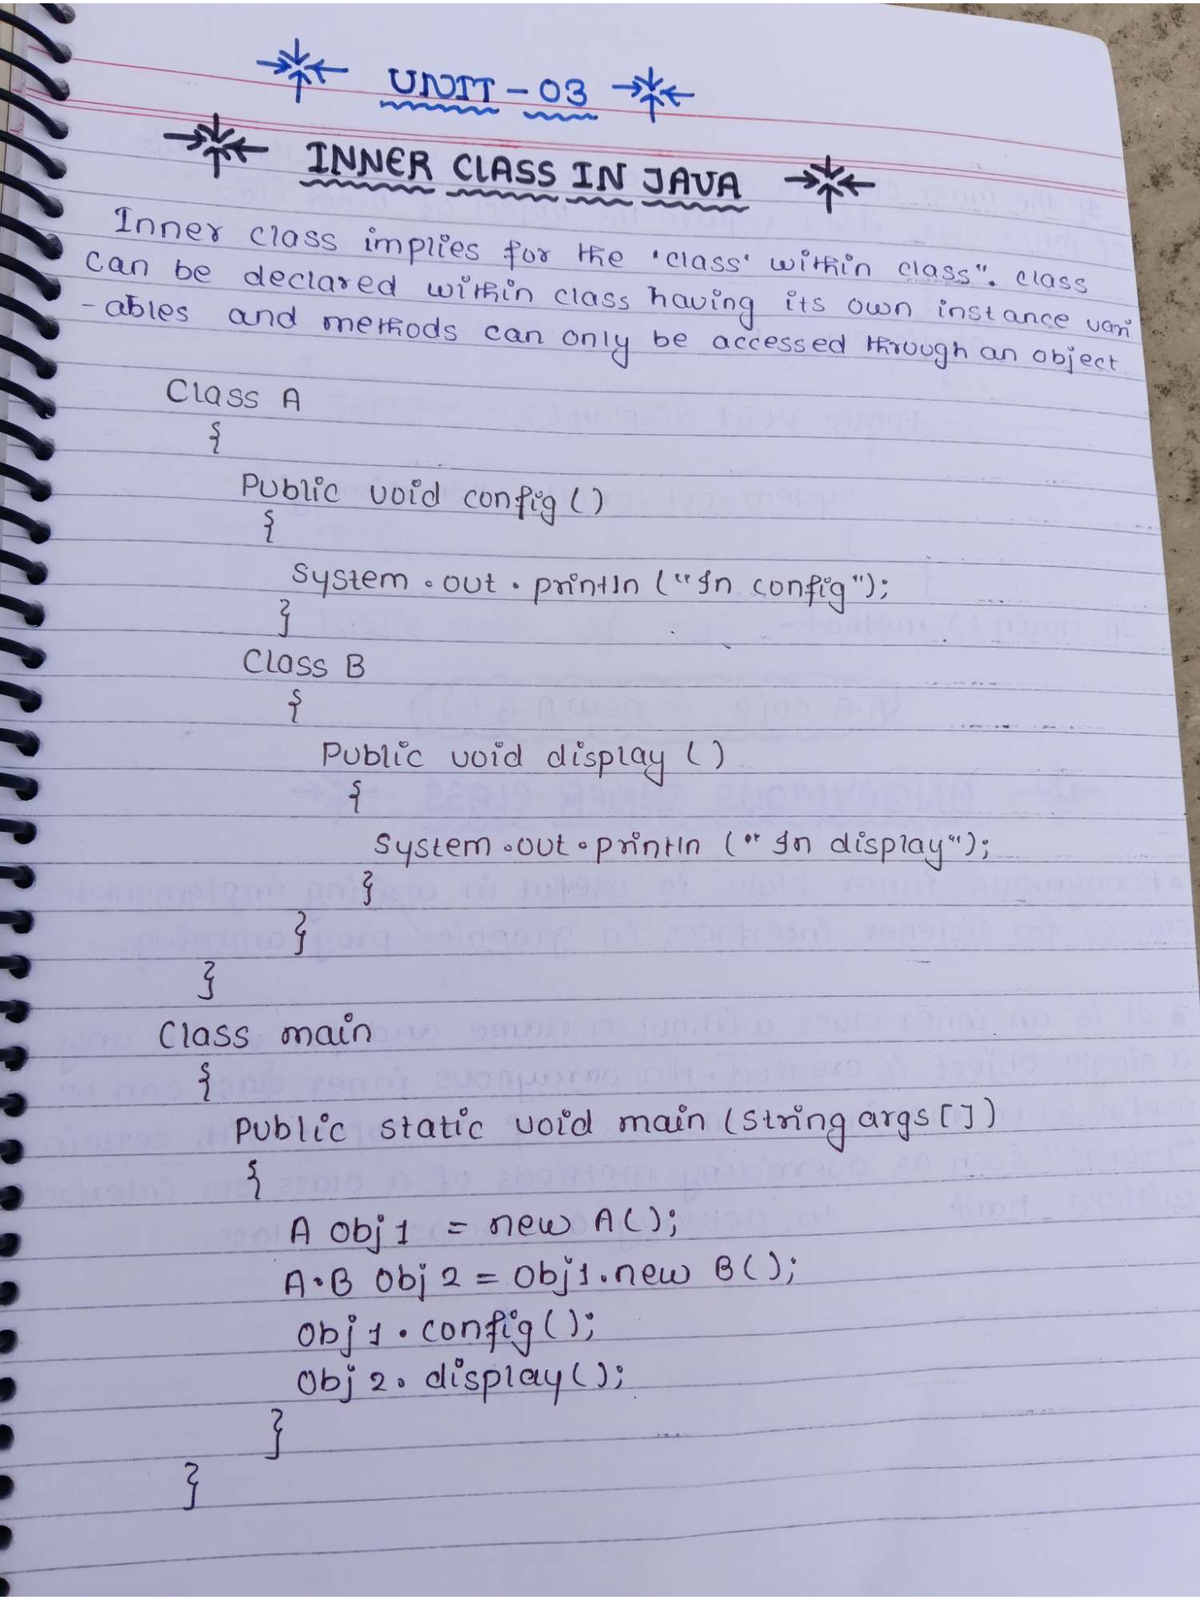 UNIT - 03
INNER CLASS IN JAVA
Inner class implies for the 'class' within class". class
can be declared within class having its own instance vari
-ables and methods can only be accessed through an object
Class A
{
Public void config ()
{
System.out.println ("In config");
}
Class B
{
Public void display ()
{
System.out.println ("In display");
}
}
}
Class main
{
Public static void main (String args[])
{
A Obj1 = new A();
A.B Obj2 = Obj1.new B();
Obj1.config();
Obj2.display();
}
}